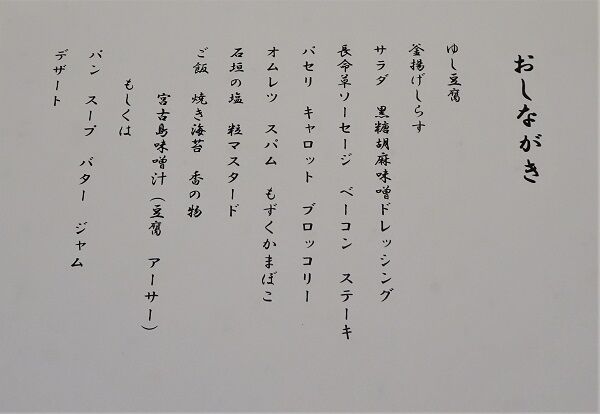 おしながき
ゆし豆腐
釜揚げしらす
サラダ　黒糖胡麻味噌ドレッシング
長命草ソーセージ　ベーコン　ステーキ
パセリ　キャロット　ブロッコリー
オムレツ　スパム　もずくかまぼこ
石垣の塩　粒マスタード
ご飯　焼き海苔　香の物
宮古島味噌汁（豆腐　アーサー）
もしくは
パン　スープ　バター　ジャム
デザート